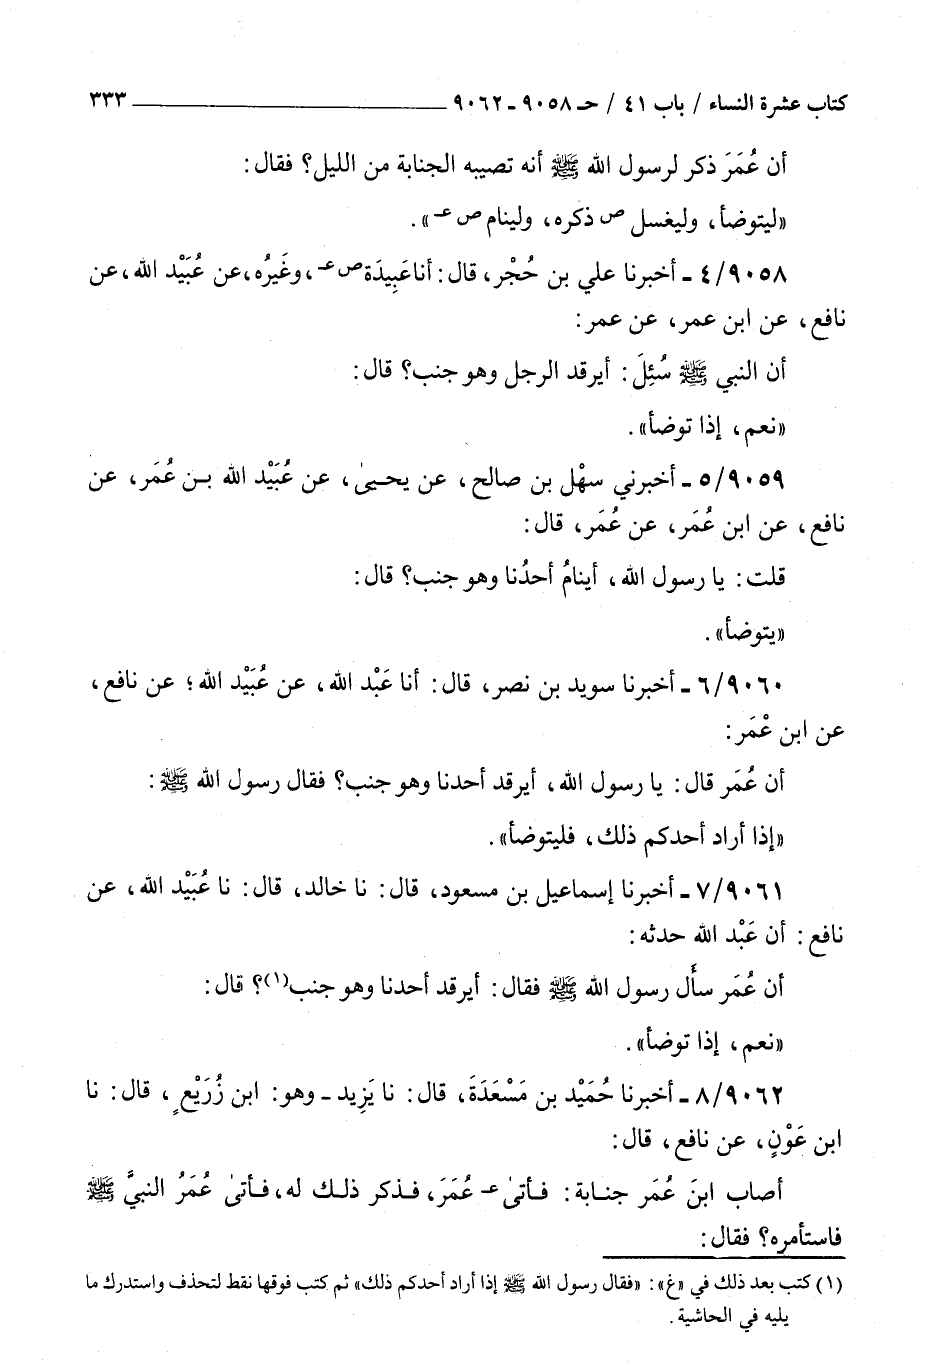 كتاب عشرة النساء / باب ٤١ / حـ ٩٠٥٨ ـ ٩٠٦٢ ٣٣٣
أن عُمَرَ ذكر لرسول الله ﷺ أنه تصيبه الجنابة من الليل؟ فقال:
«ليتوضأ، وليغسل ص ذكره، ولينام ص عـ».
٤/٩٠٥٨ ـ أخبرنا علي بن حُجْر، قال: أنا عَبِيدَة ص عـ، وغَيرُه، عن عُبَيْد الله، عن
نافع، عن ابن عمر، عن عمر:
أن النبي ﷺ سُئِلَ: أيرقد الرجل وهو جنب؟ قال:
«نعم، إذا توضأ».
٥/٩٠٥٩ ـ أخبرني سهْل بن صالح، عن يحيىٰ، عن عُبَيْد الله بـن عُمَر، عن
نافع، عن ابن عُمَر، عن عُمَر، قال:
قلت: يا رسول الله، أينامُ أحدُنا وهو جنب؟ قال:
«يتوضأ».
٦/٩٠٦٠ ـ أخبرنا سويد بن نصر، قال: أنا عَبْد الله، عن عُبَيْد الله؛ عن نافع،
عن ابن عْمَر:
أن عُمَر قال: يا رسول الله، أيرقد أحدنا وهو جنب؟ فقال رسول الله ﷺ:
«إذا أراد أحدكم ذلك، فليتوضأ».
٧/٩٠٦١ ـ أخبرنا إسماعيل بن مسعود، قال: نا خالد، قال: نا عُبَيْد الله، عن
نافع: أن عَبْد الله حدثه:
أن عُمَر سأَل رسول الله ﷺ فقال: أيرقد أحدنا وهو جنب(١)؟ قال:
«نعم، إذا توضأ».
٨/٩٠٦٢ ـ أخبرنا حُمَيْد بن مَسْعَدَةَ، قال: نا يَزِيد ـ وهو: ابن زُرَيْعٍ، قال: نا
ابن عَوْنٍ، عن نافع، قال:
أصاب ابنَ عُمَر جنـابة: فـأتىٰ عـ عُمَرَ، فـذكر ذلـك له، فـأتىٰ عُمَرُ النبيَّ ﷺ
فاستأمره؟ فقال:
(١) كتب بعد ذلك في «غ»: «فقال رسول الله ﷺ إذا أراد أحدكم ذلك» ثم كتب فوقها نقط لتحذف واستدرك ما
يليه في الحاشية.